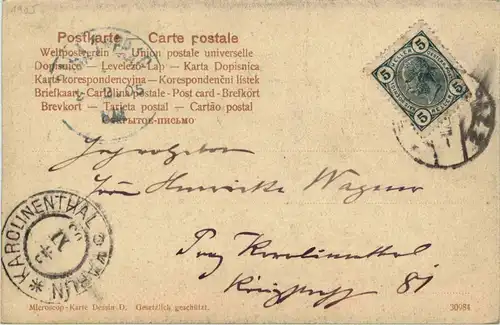 1905
Postkarte — Carte postale
Weltpostverein — Union postale universelle
Dopisnica — Levelező-Lap — Karta Dopisnica
Karta korespondencyjna — Korespondenční lístek
Briefkaart - Cartolina postale - Post card - Brefkort
Brevkort — Tarjeta postal — Cartão postal
Открытое письмо
5 HELLER 5
5 HELLER 5
Henriette Wagner
Prag Karolinenthal
81
KAROLINENTHAL
KARLÍN
Microscop-Karte Dessin D. Gesetzlich geschützt.
30984